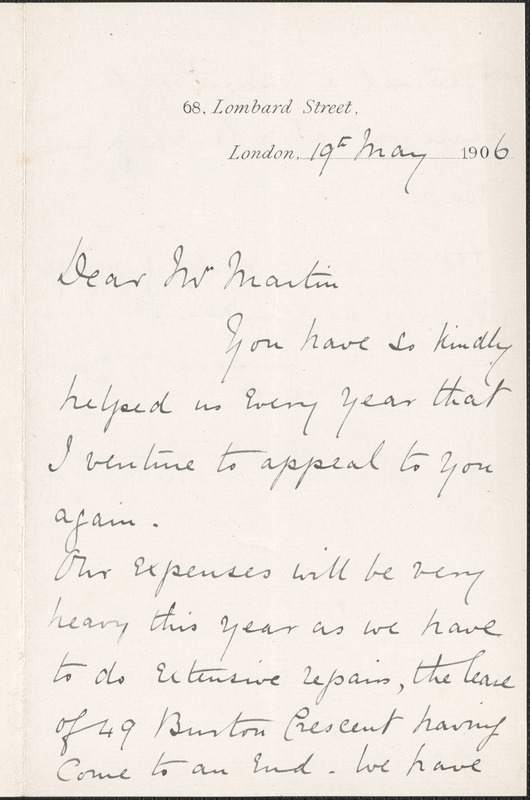 68, Lombard Street,
London, 19th May 1906
Dear Mr Martin
You have so kindly
helped us every year that
I venture to appeal to you
again.
Our expenses will be very
heavy this year as we have
to do extensive repairs, the lease
of 49 Burton Crescent having
come to an end. We have